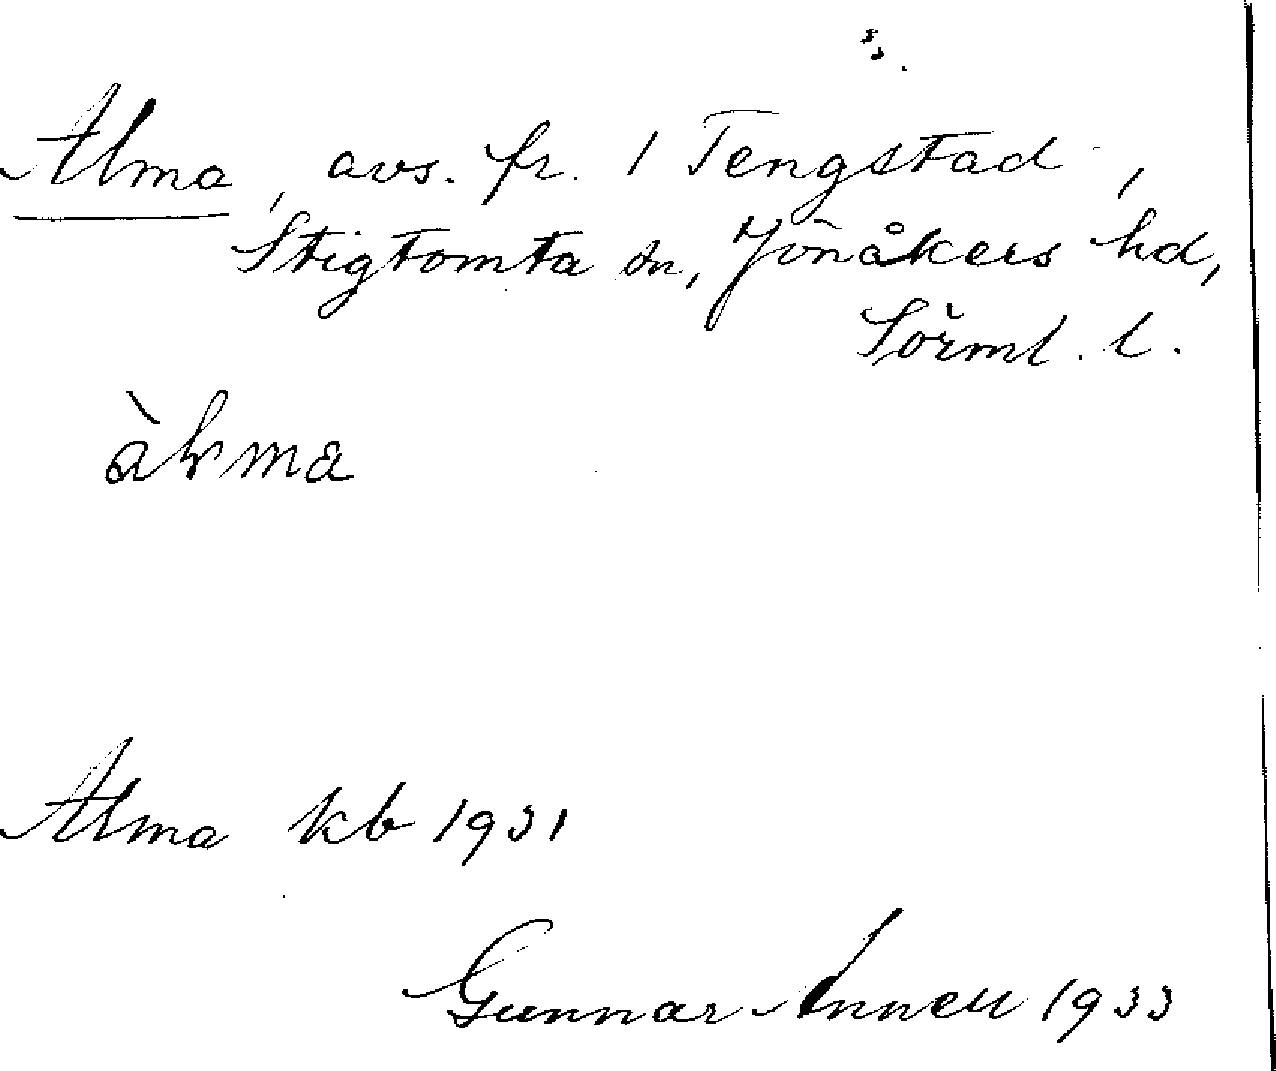 Alma, avs. fr. 1 Tengstad,
Stigtomta sn, Jönåkers hd,
Sörml. l.
Alma kb 1931
Gunnar Annell 1933